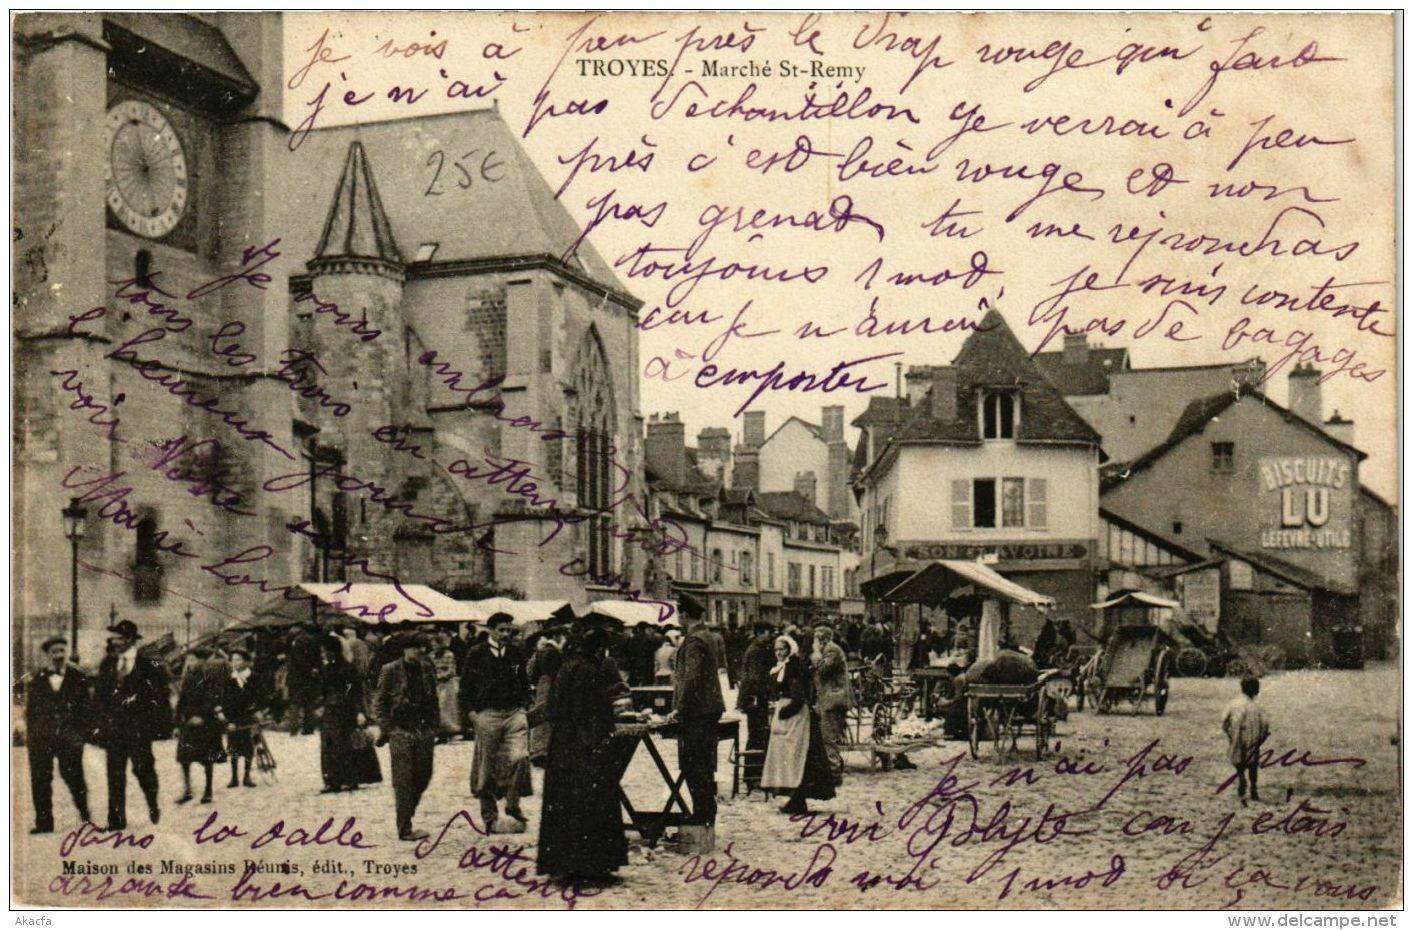 je vois à peu près le drap rouge qui fait
TROYES. - Marché St-Remy
je n'ai pas d'echantillon je verrai à peu
près c'est bien rouge et non
pas grenat, tu me répondras
toujours 1 mot, je suis contente
car je n'aurai pas de bagages
à emporter
25€
Je vous embrasse
tous les trois en attendant
l'heureux jour de vous
voir Votre
Marie Louise
BISCUITS
LU
LEFEVRE-UTILE
SON ET AVOINE
Je n'ai pas pu
voir Polyte car j'étais
dans la salle d'attente
réponds moi 1 mot si ça vous
Maison des Magasins Réunis, édit., Troyes
arrange bien comme ça
Akacfa
www.delcampe.net